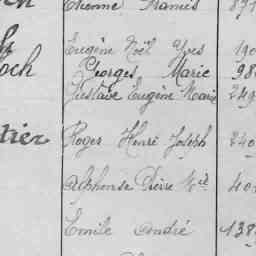 Etienne Francis
Eugène Noël Yves 190
och Georges Marie 98
Gustave Eugène Marie 249
tier Roger Henri Joseph 240
Alphonse Pierre Mie 40
Emile André 138